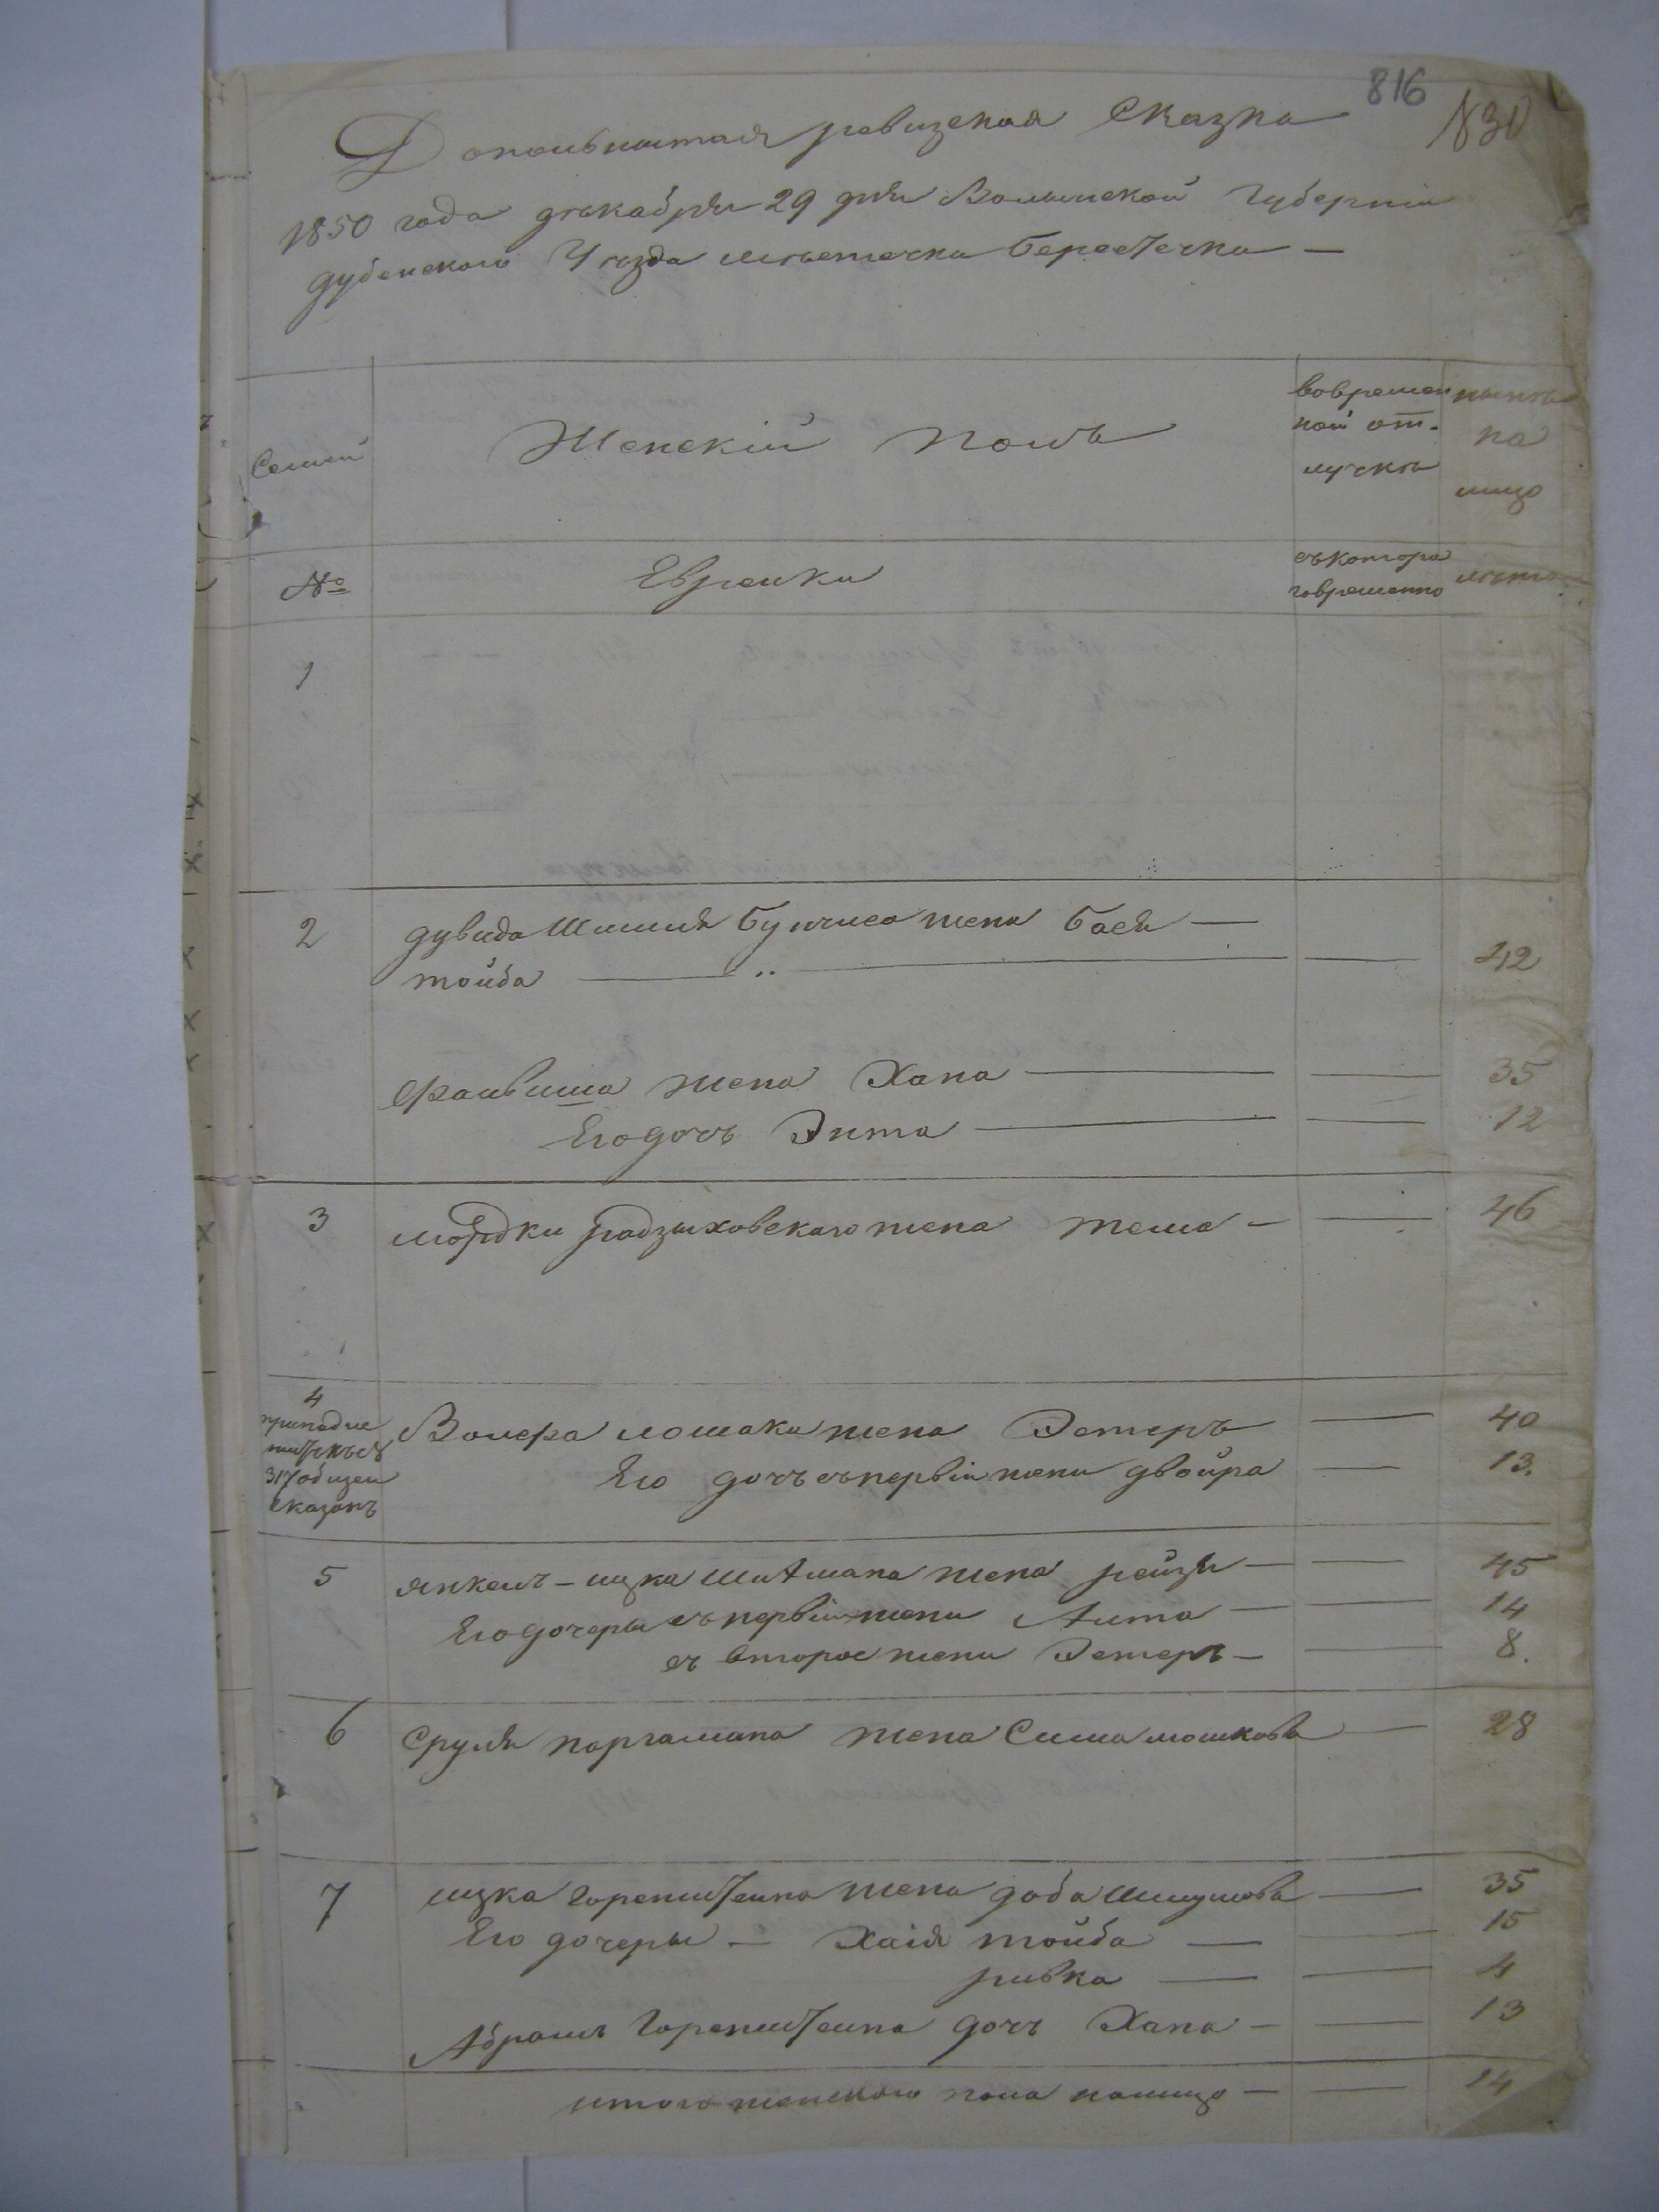 816
830
Дополнитная ревизская Сказка
1850 года декабря 29 дня Волынской Губернии
дубенского Уезда местечка берестечка —
Семии
Женскій полъ
вовремен
ной от.
лучке
ныне
на
лицо
№
Евреики
съкотора
говременно
лета
1
2
дувида Шмиля бунчиса жена бася —
тойба — 42
Файвиша жена Хана — 35
Его дочъ Энта — 12
3
мордки радзиховскаго жена теша — 46
4
принадле
жит къ
317 общеи
сказкъ
Волфа лошака жена Эстеръ — 40
Его дочъ съ первіи жени двойра — 13.
5
янкель-ицка Шитмана жена рейзя — 45
Его дочеры съ первіи жени Анта — 14
съ второе жени Эстеръ — 8.
6
Сруля портмана жена Сима мошкова — 28
7
ицка Горенштеина жена доба Шмулова — 35
Его дочеры — Хаія тойба — 15
ривка — 4
Абрама Горенштеина дочъ Хана — 13
итого женского пола налицо — 14